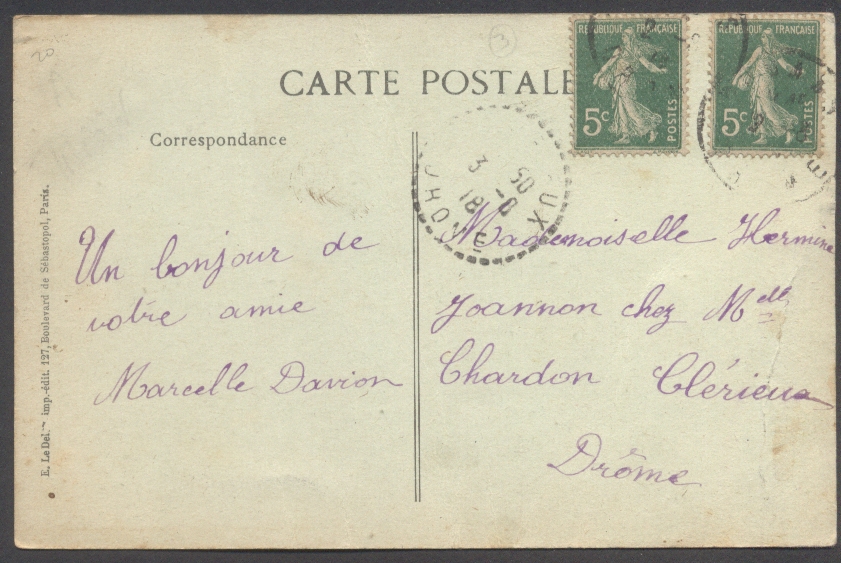 20
3
RÉPUBLIQUE FRANÇAISE
5c
POSTES
RÉPUBLIQUE FRANÇAISE
5c
POSTES
CARTE POSTALE
Correspondance
UX
RHONE
Un bonjour de
votre amie
Marcelle Davion
Mademoiselle Hermine
Joannon chez Melle
Chardon Clérieux
Drôme
E. Le Del. imp.-édit. 127, Boulevard de Sébastopol, Paris.